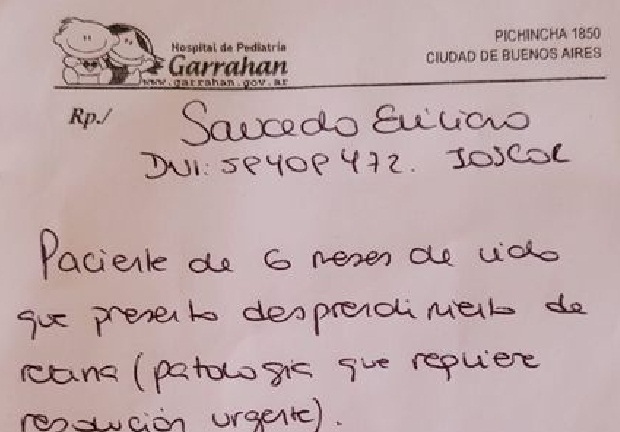 Hospital de Pediatria
Garrahan
www.garrahan.gov.ar
PICHINCHA 1850
CIUDAD DE BUENOS AIRES
Rp./
Saucedo Emiliano
DNI: 59409472. IOSCOR
Paciente de 6 meses de vida
que presenta desprendimiento de
retina (patologia que requiere
resolución urgente).